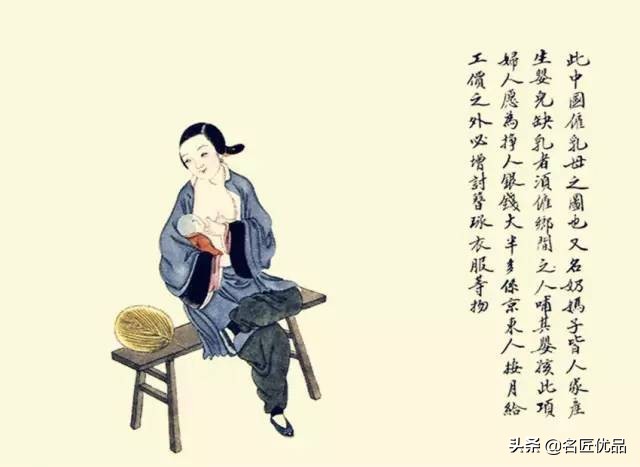 此中國僱乳母之圖也又名奶媽子皆人家産
生嬰兒缺乳者須僱鄉間之人哺其嬰孩此項
婦人愿為掙人銀錢大半多係京東人按月給
工價之外必增討簪珠衣服等物
头条 @名匠优品